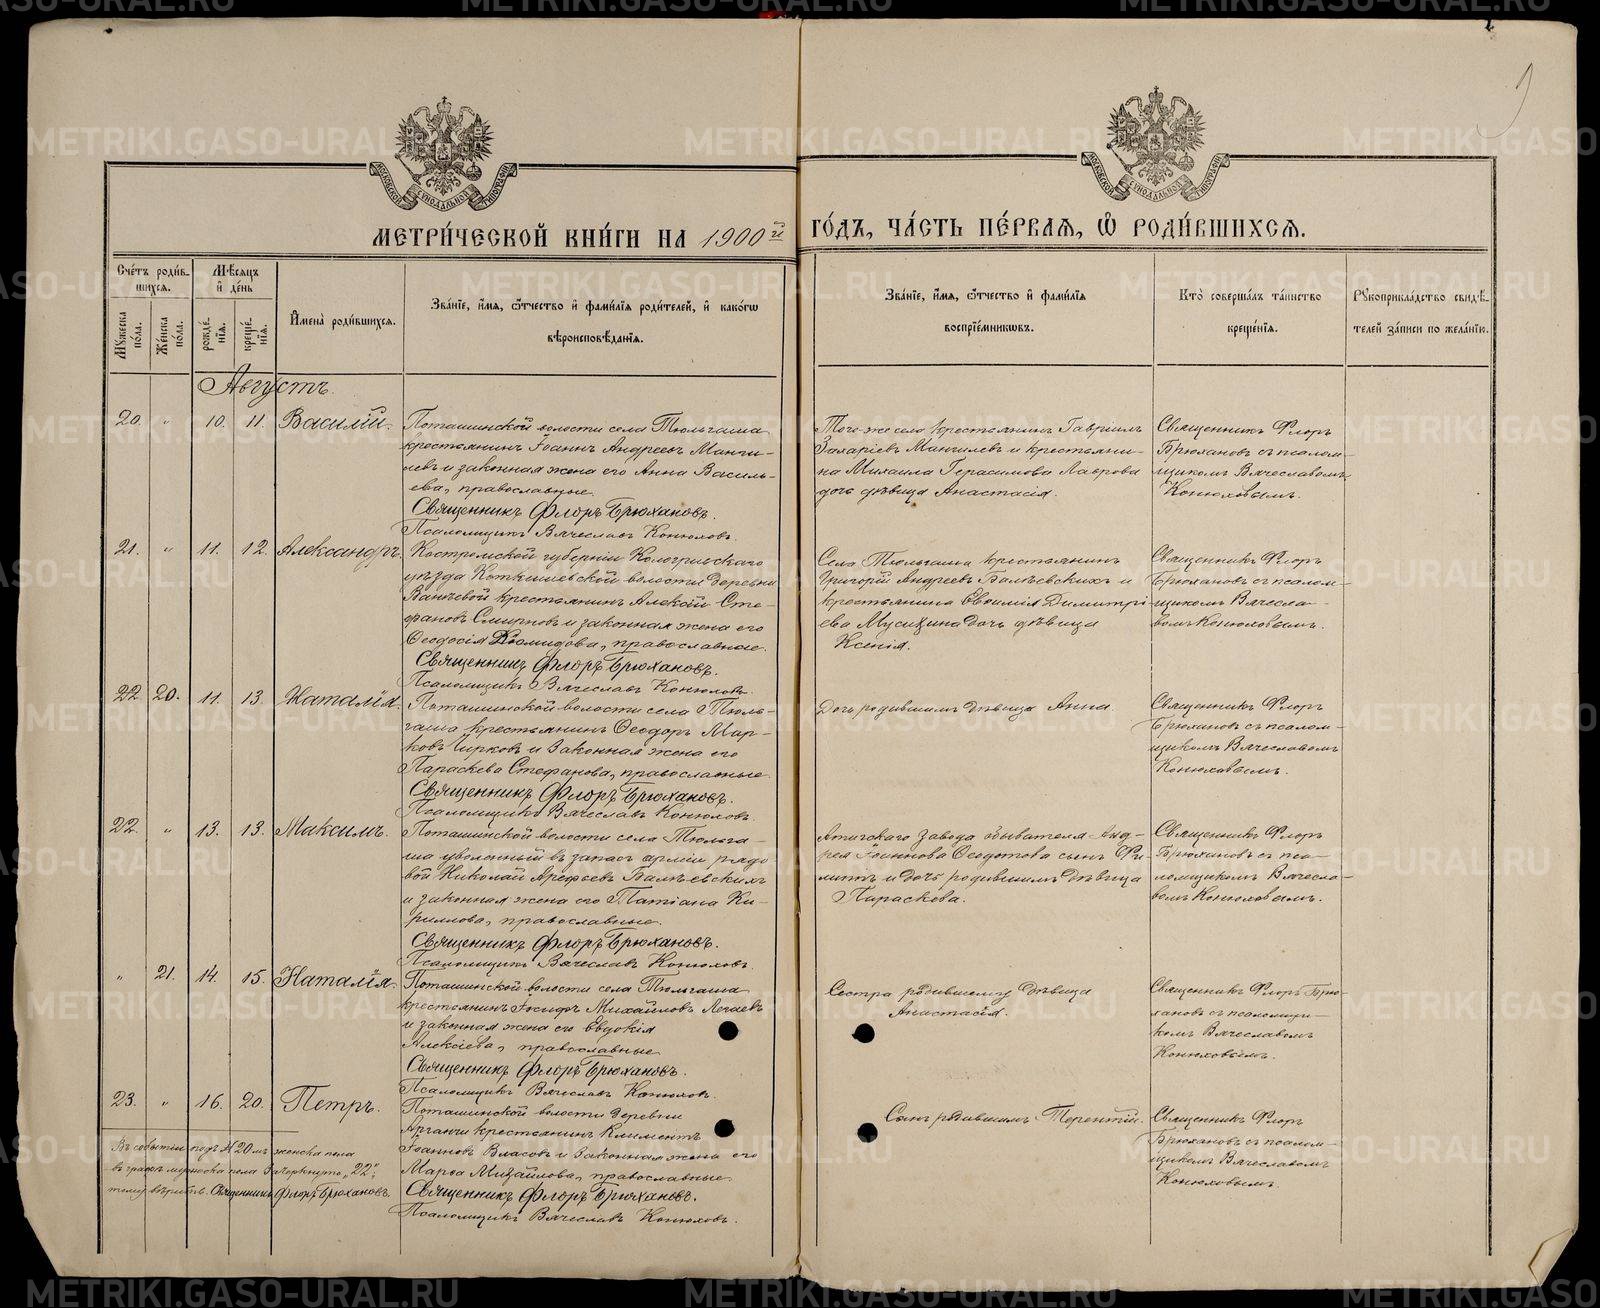 МЕТРИ́ЧЕСКОЙ КНИ́ГИ НА 1900й ГО́ДЪ, ЧА́СТЬ ПЕ́РВАЯ, Ѽ РОДИ́ВШИХСЯ.
МОСКОВСКОЙ СѴНОДАЛЬНОЙ ТИПОГРАФІИ
МОСКОВСКОЙ СѴНОДАЛЬНОЙ ТИПОГРАФІИ
Сче́тъ роди́в-
шихся.
Мѣ́сяцъ
и҆ де́нь
Мꙋ́жеска
по́ла.
Же́нска
по́ла.
рожде́-
нїѧ.
креще́-
нїѧ.
И҆мена̀ роди́вшихсѧ.
Зва́нїе, и҆́мѧ, ѻ҆́тчество и҆ фами́лїѧ роди́телей, и҆ како́гѡ
вѣроисповѣ́данїѧ.
Зва́нїе, и҆́мѧ, ѻ҆́тчество и҆ фами́лїѧ
воспрїе́мникѡвъ.
Кто̀ соверша́лъ та́инство
креще́нїѧ.
Рꙋкоприкла́дство свидѣ́-
телей за́писи по жела́нїю.
Августъ.
20. " 10. 11. Василій.
Поташинской волости села Тюльгаша
крестьянинъ Іоаннъ Андреевъ Манги-
левъ и законная жена его Анна Василь-
ева, православные.
Священникъ Флоръ Брюхановъ.
Псаломщикъ Вячеславъ Конюховъ.
Того-же села крестьянинъ Гавріилъ
Захаріевъ Мангилевъ и крестьяни-
на Михаила Герасимова Лаврова
дочь дѣвица Анастасія.
Священникъ Флоръ
Брюхановъ съ псалом-
щикомъ Вячеславомъ
Конюховымъ.
21. " 11. 12. Александръ.
Костромской губерніи Кологривскаго
уѣзда волости деревни
крестьянинъ Алексій Сте-
фановъ Смирновъ и законная жена его
Ѳеодосія Діомидова, православные.
Священникъ Флоръ Брюхановъ.
Псаломщикъ Вячеславъ Конюховъ.
Села Тюльгаша крестьянинъ
Григорій Андреевъ Балѣевскихъ и
крестьянина Евѳимія Димитрі-
ева Мусихина дочь дѣвица
Ксенія.
Священникъ Флоръ
Брюхановъ съ псалом-
щикомъ Вячесла-
вомъ Конюховымъ.
22 20. 11. 13. Наталія.
Поташинской волости села Тюль-
гаша крестьянинъ Ѳеодоръ Мар-
ковъ Чирковъ и законная жена его
Параскева Стефанова, православные.
Священникъ Флоръ Брюхановъ.
Псаломщикъ Вячеславъ Конюховъ.
Дочь родившимъ дѣвица Анна.
Священникъ Флоръ
Брюхановъ съ псалом-
щикомъ Вячеславомъ
Конюховымъ.
22. " 13. 13. Максимъ.
Поташинской волости села Тюльга-
ша уволенный въ запасъ арміи рядо-
вой Николай Арефьевъ Балѣевскихъ
и законная жена его Татіана Ки-
риллова, православные.
Священникъ Флоръ Брюхановъ.
Псаломщикъ Вячеславъ Конюховъ.
Атигскаго завода обывателя Анд-
рея Іоаннова Ѳеодотова сынъ Фи-
липпъ и дочь родившимъ дѣвица
Параскева.
Священникъ Флоръ
Брюхановъ съ пса-
ломщикомъ Вячесла-
вомъ Конюховымъ.
" 21. 14. 15. Наталія.
Поташинской волости села Тюльгаша
крестьянинъ Іосифъ Михайловъ
и законная жена его Евдокія
Алексіева, православные
Священникъ Флоръ Брюхановъ.
Псаломщикъ Вячеславъ Конюховъ.
Сестра родившему дѣвица
Анастасія.
Священникъ Флоръ Брю-
хановъ съ псаломщи-
комъ Вячеславомъ
Конюховымъ.
23. " 16. 20. Петръ.
Поташинской волости деревни
Арганчи крестьянинъ Климентъ
Іоанновъ Власовъ и законная жена его
Марѳа Михайлова, православные
Священникъ Флоръ Брюхановъ.
Псаломщикъ Вячеславъ Конюховъ.
Сынъ родившимъ Терентій.
Священникъ Флоръ
Брюхановъ съ псалом-
щикомъ Вячеславомъ
Конюховымъ.
Въ событіи подъ № 20мъ женска пола
въ графѣ мужеска пола зачеркнуто „22",
тому вѣрить. Священникъ Флоръ Брюхановъ.
METRIKI.GASO-URAL.RU